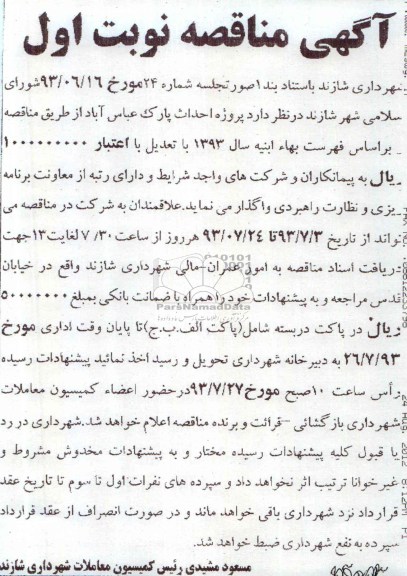 آگهی مناقصه نوبت اول
شهرداری شازند باستناد بند ۱صورتجلسه شماره ۲۴مورخ ۹۳/۰۶/۱۶شورای
سلامی شهر شازند درنظر دارد پروژه احداث پارک عباس آباد از طریق مناقصه
براساس فهرست بهاء ابنیه سال ۱۳۹۳ با تعدیل با اعتبار ۱۰۰۰۰۰۰۰۰۰
ریال به پیمانکاران و شرکت های واجد شرایط و دارای رتبه از معاونت برنامه
یزی و نظارت راهبردی واگذار می نماید.علاقمندان به شرکت در مناقصه می
واند از تاریخ ۹۳/۷/۳تا ۹۳/۰۷/۲۴ هرروز از ساعت ۷/۳۰ لغایت۱۳جهت
دریافت اسناد مناقصه به امور عمران-مالی شهرداری شازند واقع در خیابان
قدس مراجعه و به پیشنهادات خود را همراه با ضمانت بانکی بمبلغ ۵۰۰۰۰۰۰۰
ریال در پاکت دربسته شامل(پاکت الف.ب.ج)تا پایان وقت اداری مورخ
۲۶/۷/۹۳ به دبیرخانه شهرداری تحویل و رسید اخذ نمائید پیشنهادات رسیده
رأس ساعت ۱۰صبح مورخ۹۳/۷/۲۷درحضور اعضاء کمیسیون معاملات
شهرداری بازگشائی -قرائت و برنده مناقصه اعلام خواهد شد.شهرداری در رد
یا قبول کلیه پیشنهادات رسیده مختار و به پیشنهادات مخدوش مشروط و
غیرخوانا ترتیب اثر نخواهد داد و سپرده های نفرات اول تا سوم تا تاریخ عقد
قرارداد نزد شهرداری باقی خواهد ماند و در صورت انصراف از عقد قرارداد
سپرده به نفع شهرداری ضبط خواهد شد.
مسعود مشیدی رئیس کمیسیون معاملات شهرداری شازند
ParsNamadData